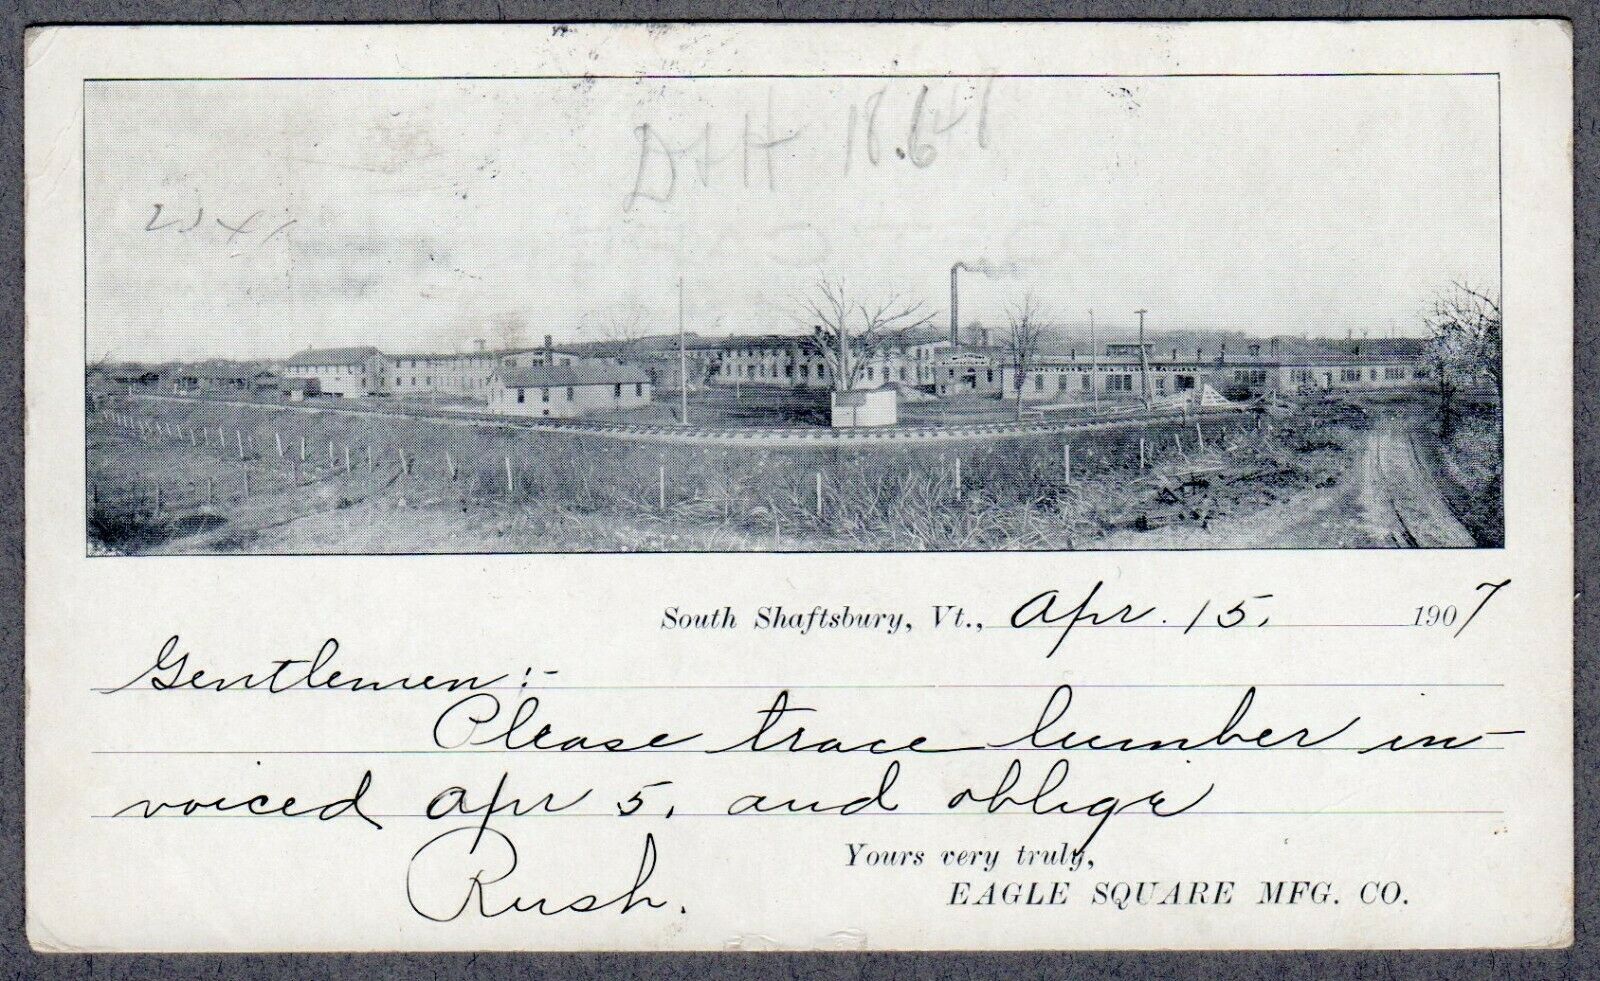 D + H 18.647
South Shaftsbury, Vt., Apr. 15, 1907
Gentlemen:-
Please trace lumber in-
voiced Apr 5, and oblige
Yours very truly,
Rush.
EAGLE SQUARE MFG. CO.